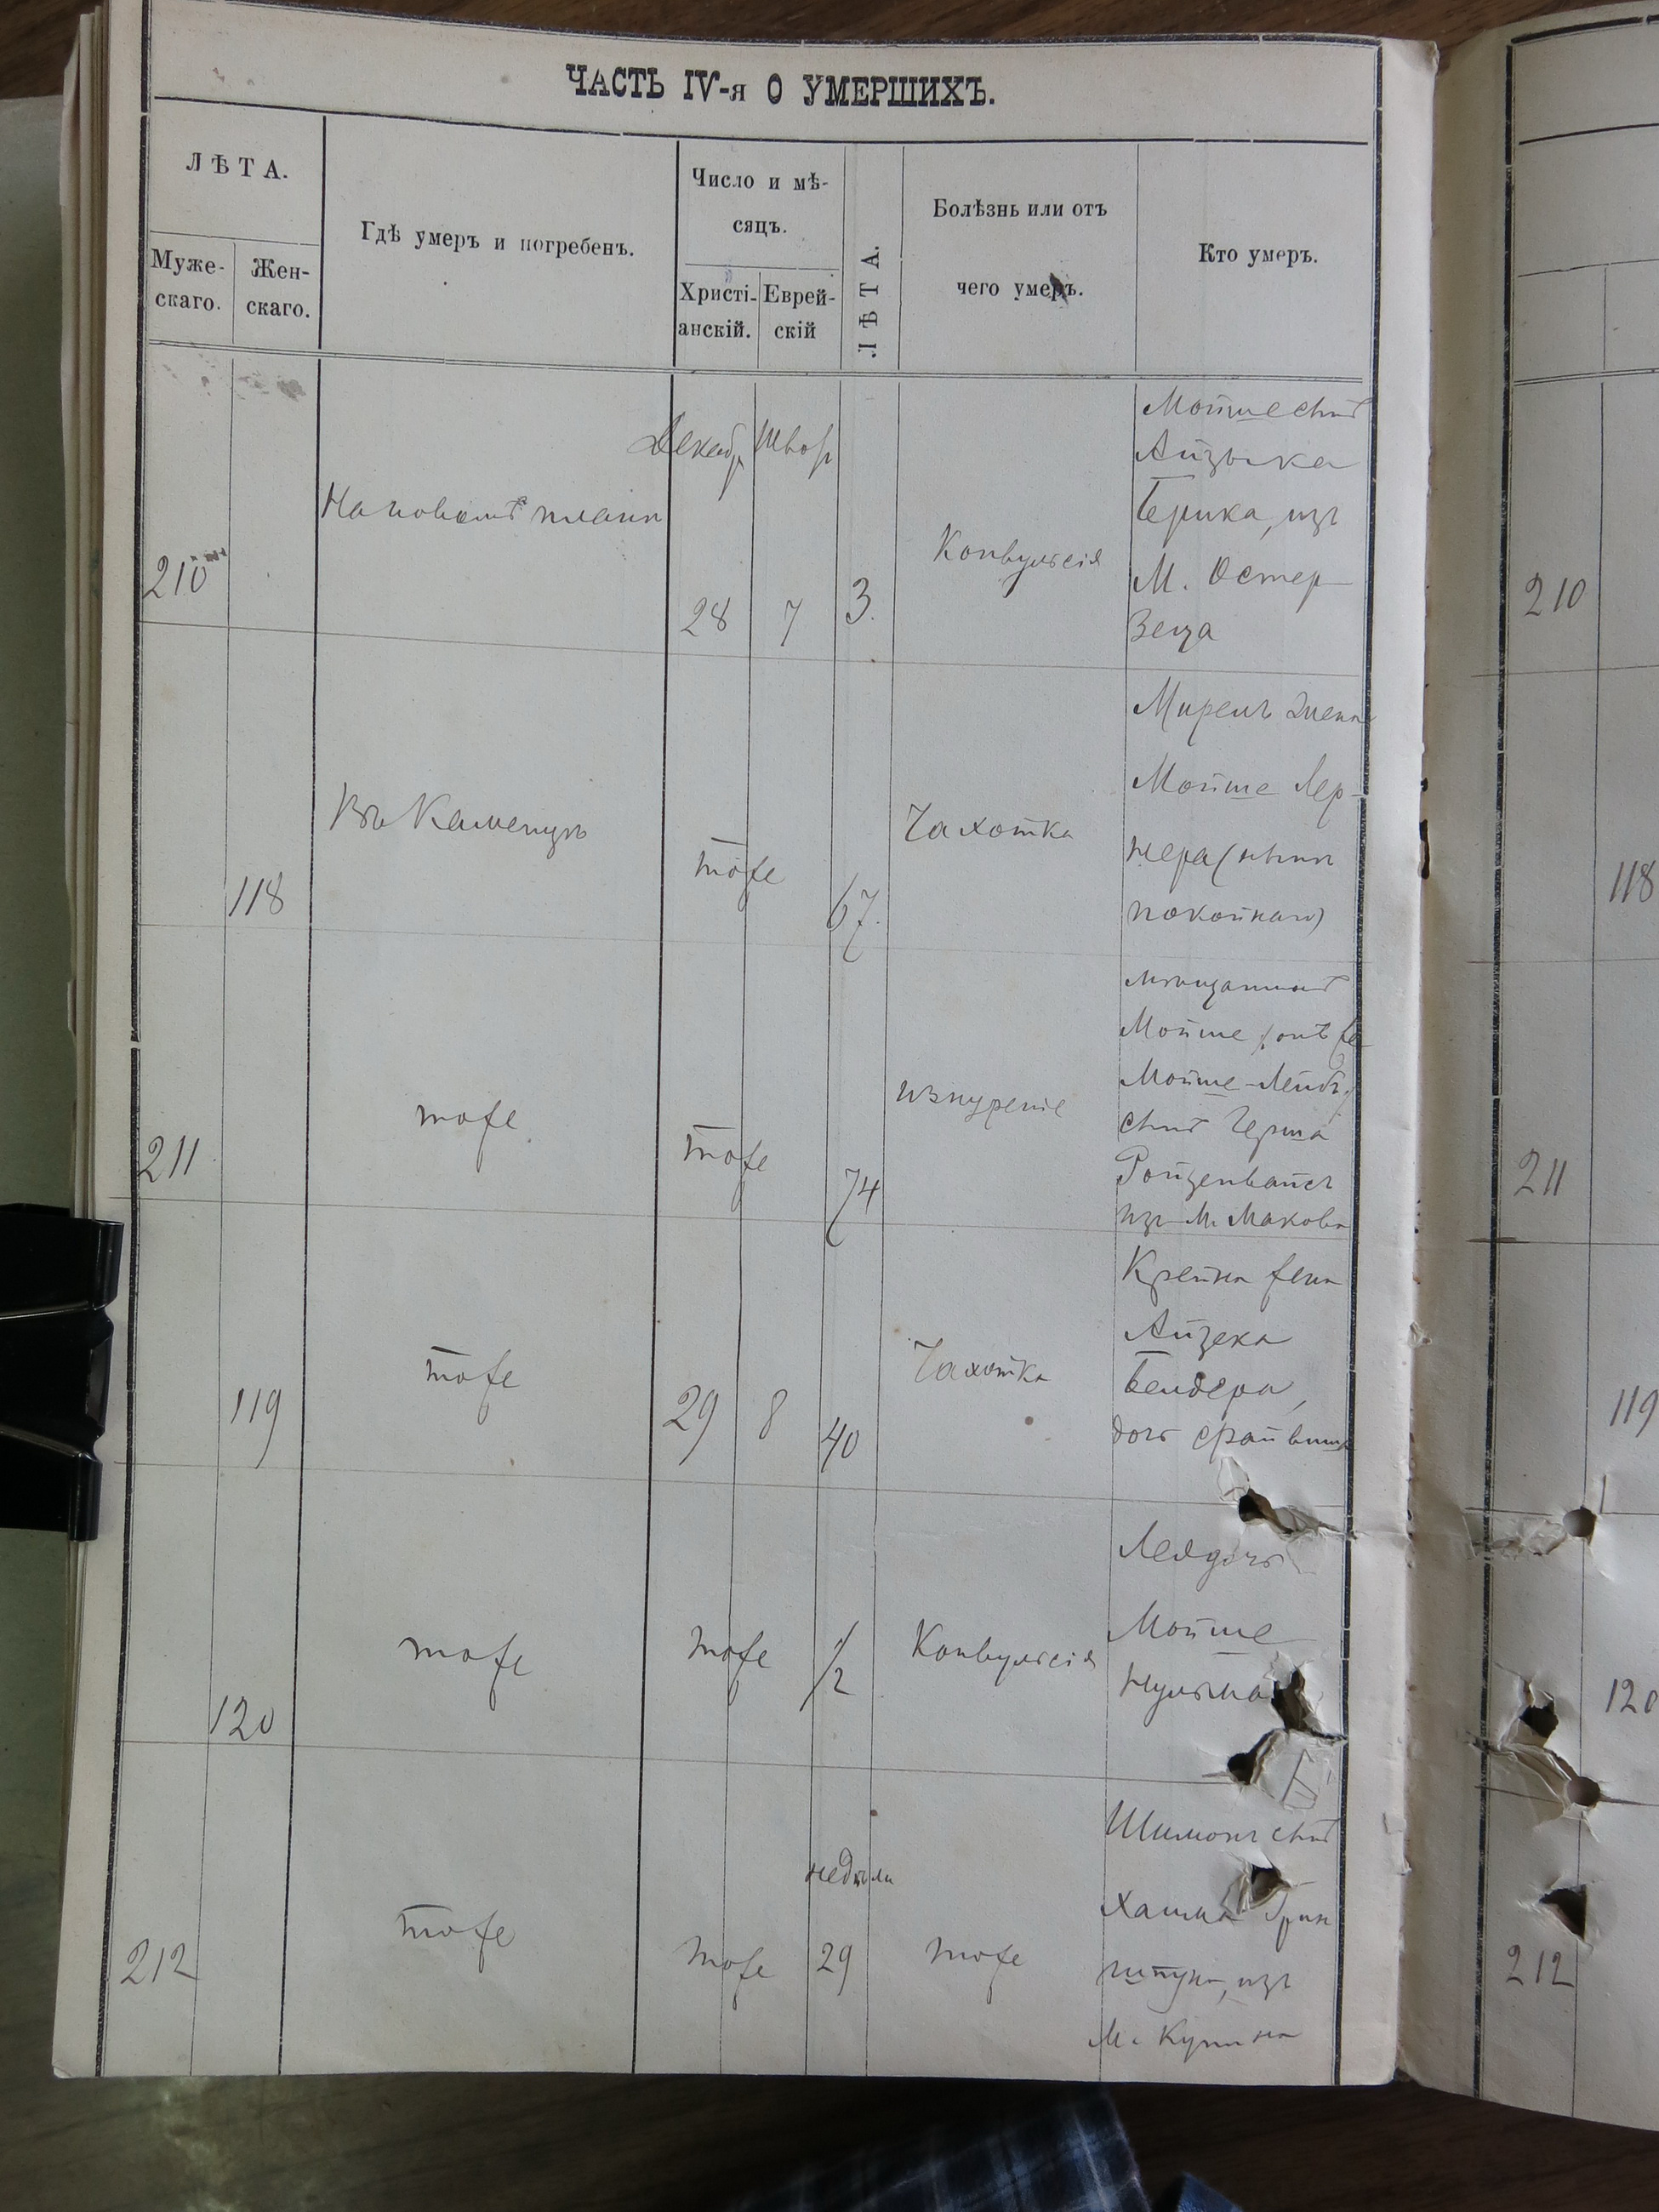 ЧАСТЬ IV-я О УМЕРШИХЪ.
ЛѢТА.
Муже-
скаго.
Жен-
скаго.
Гдѣ умеръ и погребенъ.
Число и мѣ-
сяцъ.
Христі-
анскій.
Еврей-
скій
ЛѢТА.
Болѣзнь или отъ
чего умеръ.
Кто умеръ.
210
На новомъ планѣ
Декабр
28
7
3.
Конвульсія
Мойше сынъ
Айзыка
Берика, изъ
М. Остер-
118
Въ Каменцѣ
тоже
67.
Чахотка
Мирель жена
Мойше Лер-
нера (нынѣ
покойнаго)
211
тоже
тоже
74
Изнуреніе
мѣщанинъ
Мойше (онъ же
Мойше-Лейбъ)
сынъ Герша
Ройзенвайсъ
изъ М. Макова
119
тоже
29
8
40
Чахотка
Крейна жена
Айзека
Бендера,
дочь
120
тоже
тоже
1/2
Конвульсія
Лея дочь
Мойше
212
тоже
тоже
недѣли
29
тоже
Шимонъ сынъ
Хаима Грин
шпуна, изъ
М. Купина
210
118
211
119
120
212